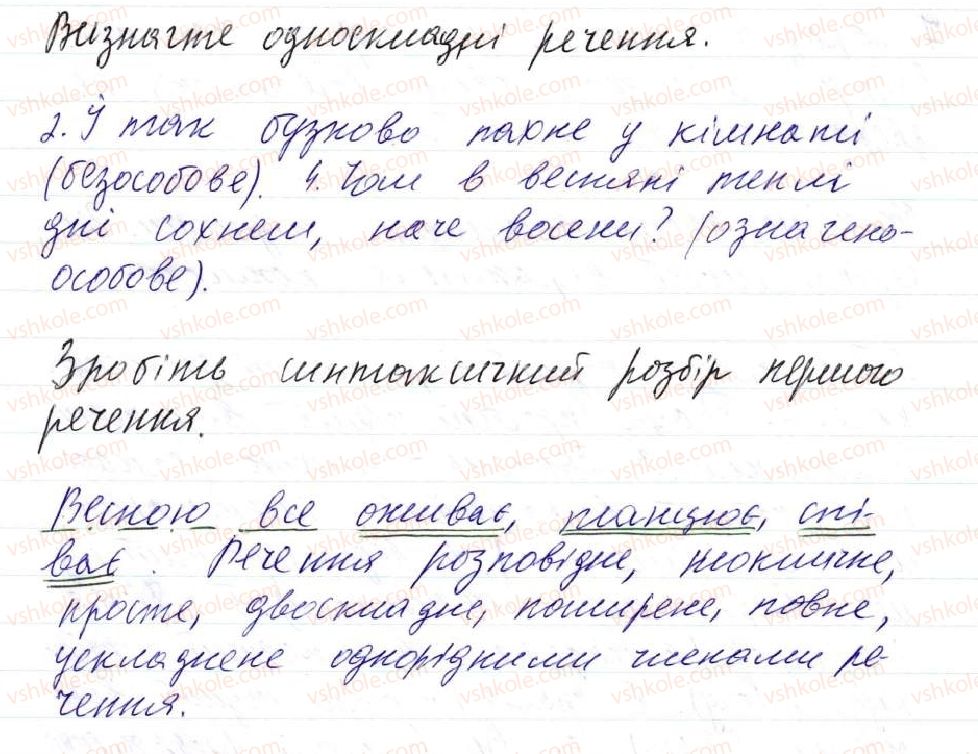 Визначте односкладні речення.
2. Й так бузково пахне у кімнаті
(безособове). 4. Чом в весняні теплі
дні сохнем, наче восени? (означено-
особове).
Зробіть синтаксичний розбір першого
речення.
Весною все оживає, танцює, спі-
ває. Речення розповідне, неокличне,
просте, двоскладне, поширене, повне,
ускладнене однорідними членами ре-
чення.